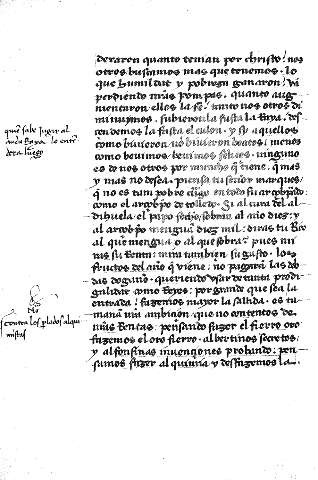 deraron quanto tenian por christo! nos
otros buscamos mas que tenemos. lo
que humildat y pobreza ganaron! va
perdiendo nuestras pompas. quanto aug
mentaron ellos la fe. tanto nos otros di
minuymos. subieron la fasta la
cendemos la fasta el . y si aquellos
como bivieron no bivieron beatos! menos
como bevimos. bevimos felices. ninguno
es de nos otros por mucho que tiene. que mas
y mas no desea. piensa tu señor marques.
que no es tan pobre en todo su arçobispado
como el arçobispo de toledo. Si al cura del al
dihuela el papo sobran al año diez! y
al arçobispo mengua diez mil. diras tu
al que mengua o al que sobra? pues mi
ra su Renta. mira tambien su gasto. los
fructos del año que viene. no pagará las deb
das dogaño. queriendo usar de tanta prodi
galidat como Reyes! por grande que sea la
entrada! fazemos mayor la sallida. es tu
mana vin ambicion. que no contentos de
nuestras Rentas. pensando fazer el fierro oro
fazemos el oro fierro. albertinos secretos!
y alfonsinas invenciones profundo. pen
samos fazer al quimia y desfazemos la
que sabe jugar al
la ente
dera luego
No
contra los alqui
mistas